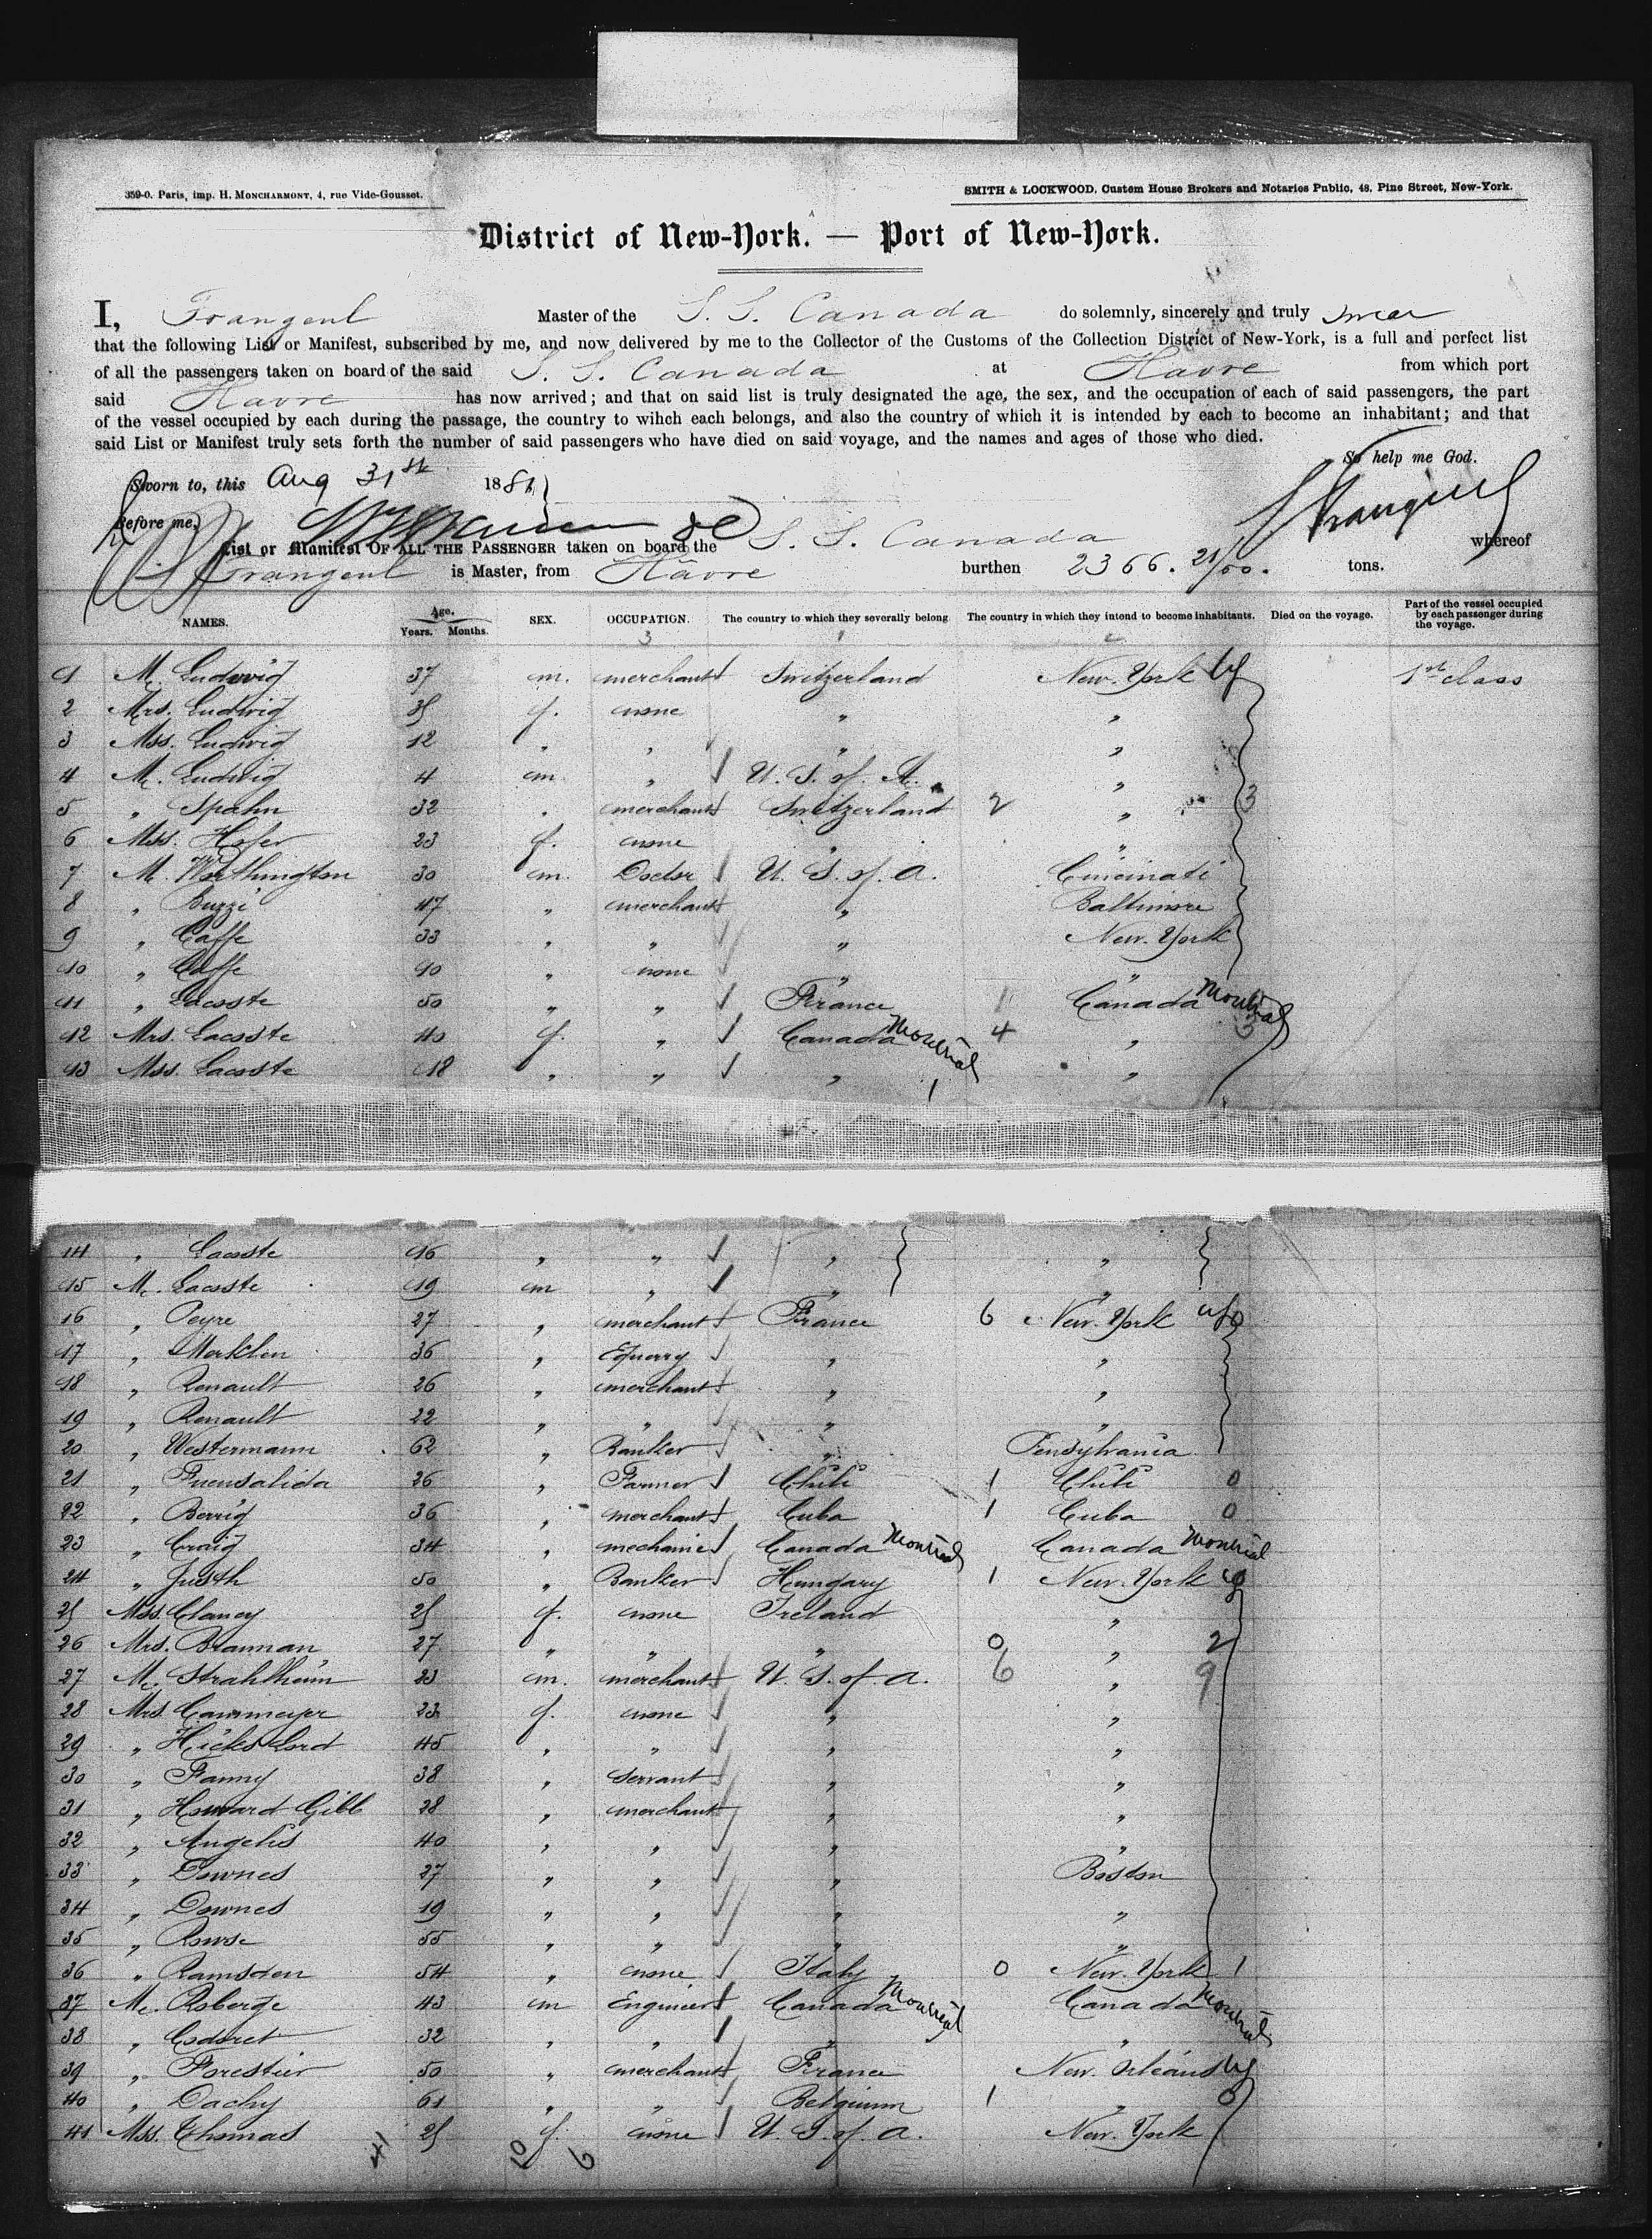 359-0. Paris, imp. H. MONCHARMONT, 4, rue Vide-Gousset.
SMITH & LOCKWOOD, Custom House Brokers and Notaries Public, 48, Pine Street, New-York.
District of New-York. — Port of New-York.
I, Frangeul Master of the S. S. Canada do solemnly, sincerely and truly swear
that the following List or Manifest, subscribed by me, and now delivered by me to the Collector of the Customs of the Collection District of New-York, is a full and perfect list
of all the passengers taken on board of the said S. S. Canada at Havre from which port
said Havre has now arrived; and that on said list is truly designated the age, the sex, and the occupation of each of said passengers, the part
of the vessel occupied by each during the passage, the country to wihch each belongs, and also the country of which it is intended by each to become an inhabitant; and that
said List or Manifest truly sets forth the number of said passengers who have died on said voyage, and the names and ages of those who died.
So help me God.
Sworn to, this Aug 31st 1881
Before me,
Frangeul
List or Manifest OF ALL THE PASSENGER taken on board the S. S. Canada whereof
Frangeul is Master, from Havre burthen 2366. 21/00. tons.
NAMES. Age. Years. Months. SEX. OCCUPATION. The country to which they severally belong The country in which they intend to become inhabitants. Died on the voyage. Part of the vessel occupied by each passenger during the voyage.
3 1 2
1 M. Ludwig 37 m. merchant Switzerland New. York 1st class
2 Mrs. Ludwig 35 f. none " "
3 Mss. Ludwig 12 " " " "
4 M. Ludwig 4 m. " U. S. of. A. "
5 " Spahn 32 " merchant Switzerland 2 " 3
6 Mss. Hofer 23 f. none " "
7 M. Worthington 30 m. Doctor U. S. of. A. Cincinati
8 " Buzzi 47 " merchant " Baltimore
9 " Caffe 33 " " " New. York
10 " Caffe 10 " none " "
11 " Lacoste 50 " " France 1 Canada Montreal
12 Mrs. Lacoste 40 f. " Canada Montreal 4 " 3
13 Mss. Lacoste 18 " " " "
14 " Lacoste 16 " " " "
15 M. Lacoste 19 m " " "
16 " Peyre 27 " merchant France 6 New. York
17 " Merklen 36 " Equerry " "
18 " Renault 26 " merchant " "
19 " Renault 22 " " " "
20 " Westermann 62 " Banker " Pensylvania
21 " Fuensalida 26 " Farmer Chili 1 Chili 0
22 " Berrig 36 " merchant Cuba 1 Cuba 0
23 " Craig 34 " mechanic Canada Montreal Canada Montreal
24 " Justh 50 " Banker Hungary 1 New. York
25 Mss. Clancy 25 f. none Ireland "
26 Mrs. Brannan 27 " " " 0 " 2
27 M. Strahlheim 23 m. merchant U. S. of. A. 6 " 9
28 Mrs. Cammeyer 23 f. none " "
29 " Hicks Lord 45 " " " "
30 " Fanny 38 " servant " "
31 " Howard Gibb 28 " merchant " "
32 " Angelis 40 " " " "
33 " Downes 27 " " " Boston
34 " Downes 19 " " " "
35 " Rowse 55 " " " "
36 " Ramsden 54 " none Italy 0 New. York 1
37 M. Roberge 43 m Engineer Canada Montreal Canada Montreal
38 " Coderet 32 " " " "
39 " Forestier 50 " merchant France New. Orléans
40 " Dachy 61 " " Belgium 1 " 0
41 Mss. Thomas 25 f. none U. S. of. A. New. York
41 10 6